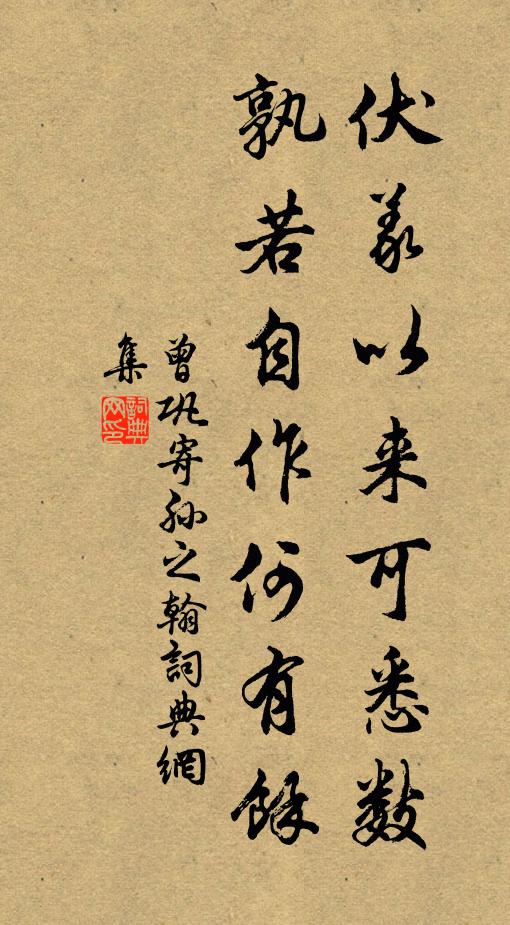 伏羲以来可悉数
孰若自作何有餘
曾巩寄孙之翰詞典網
集
詞典
网印